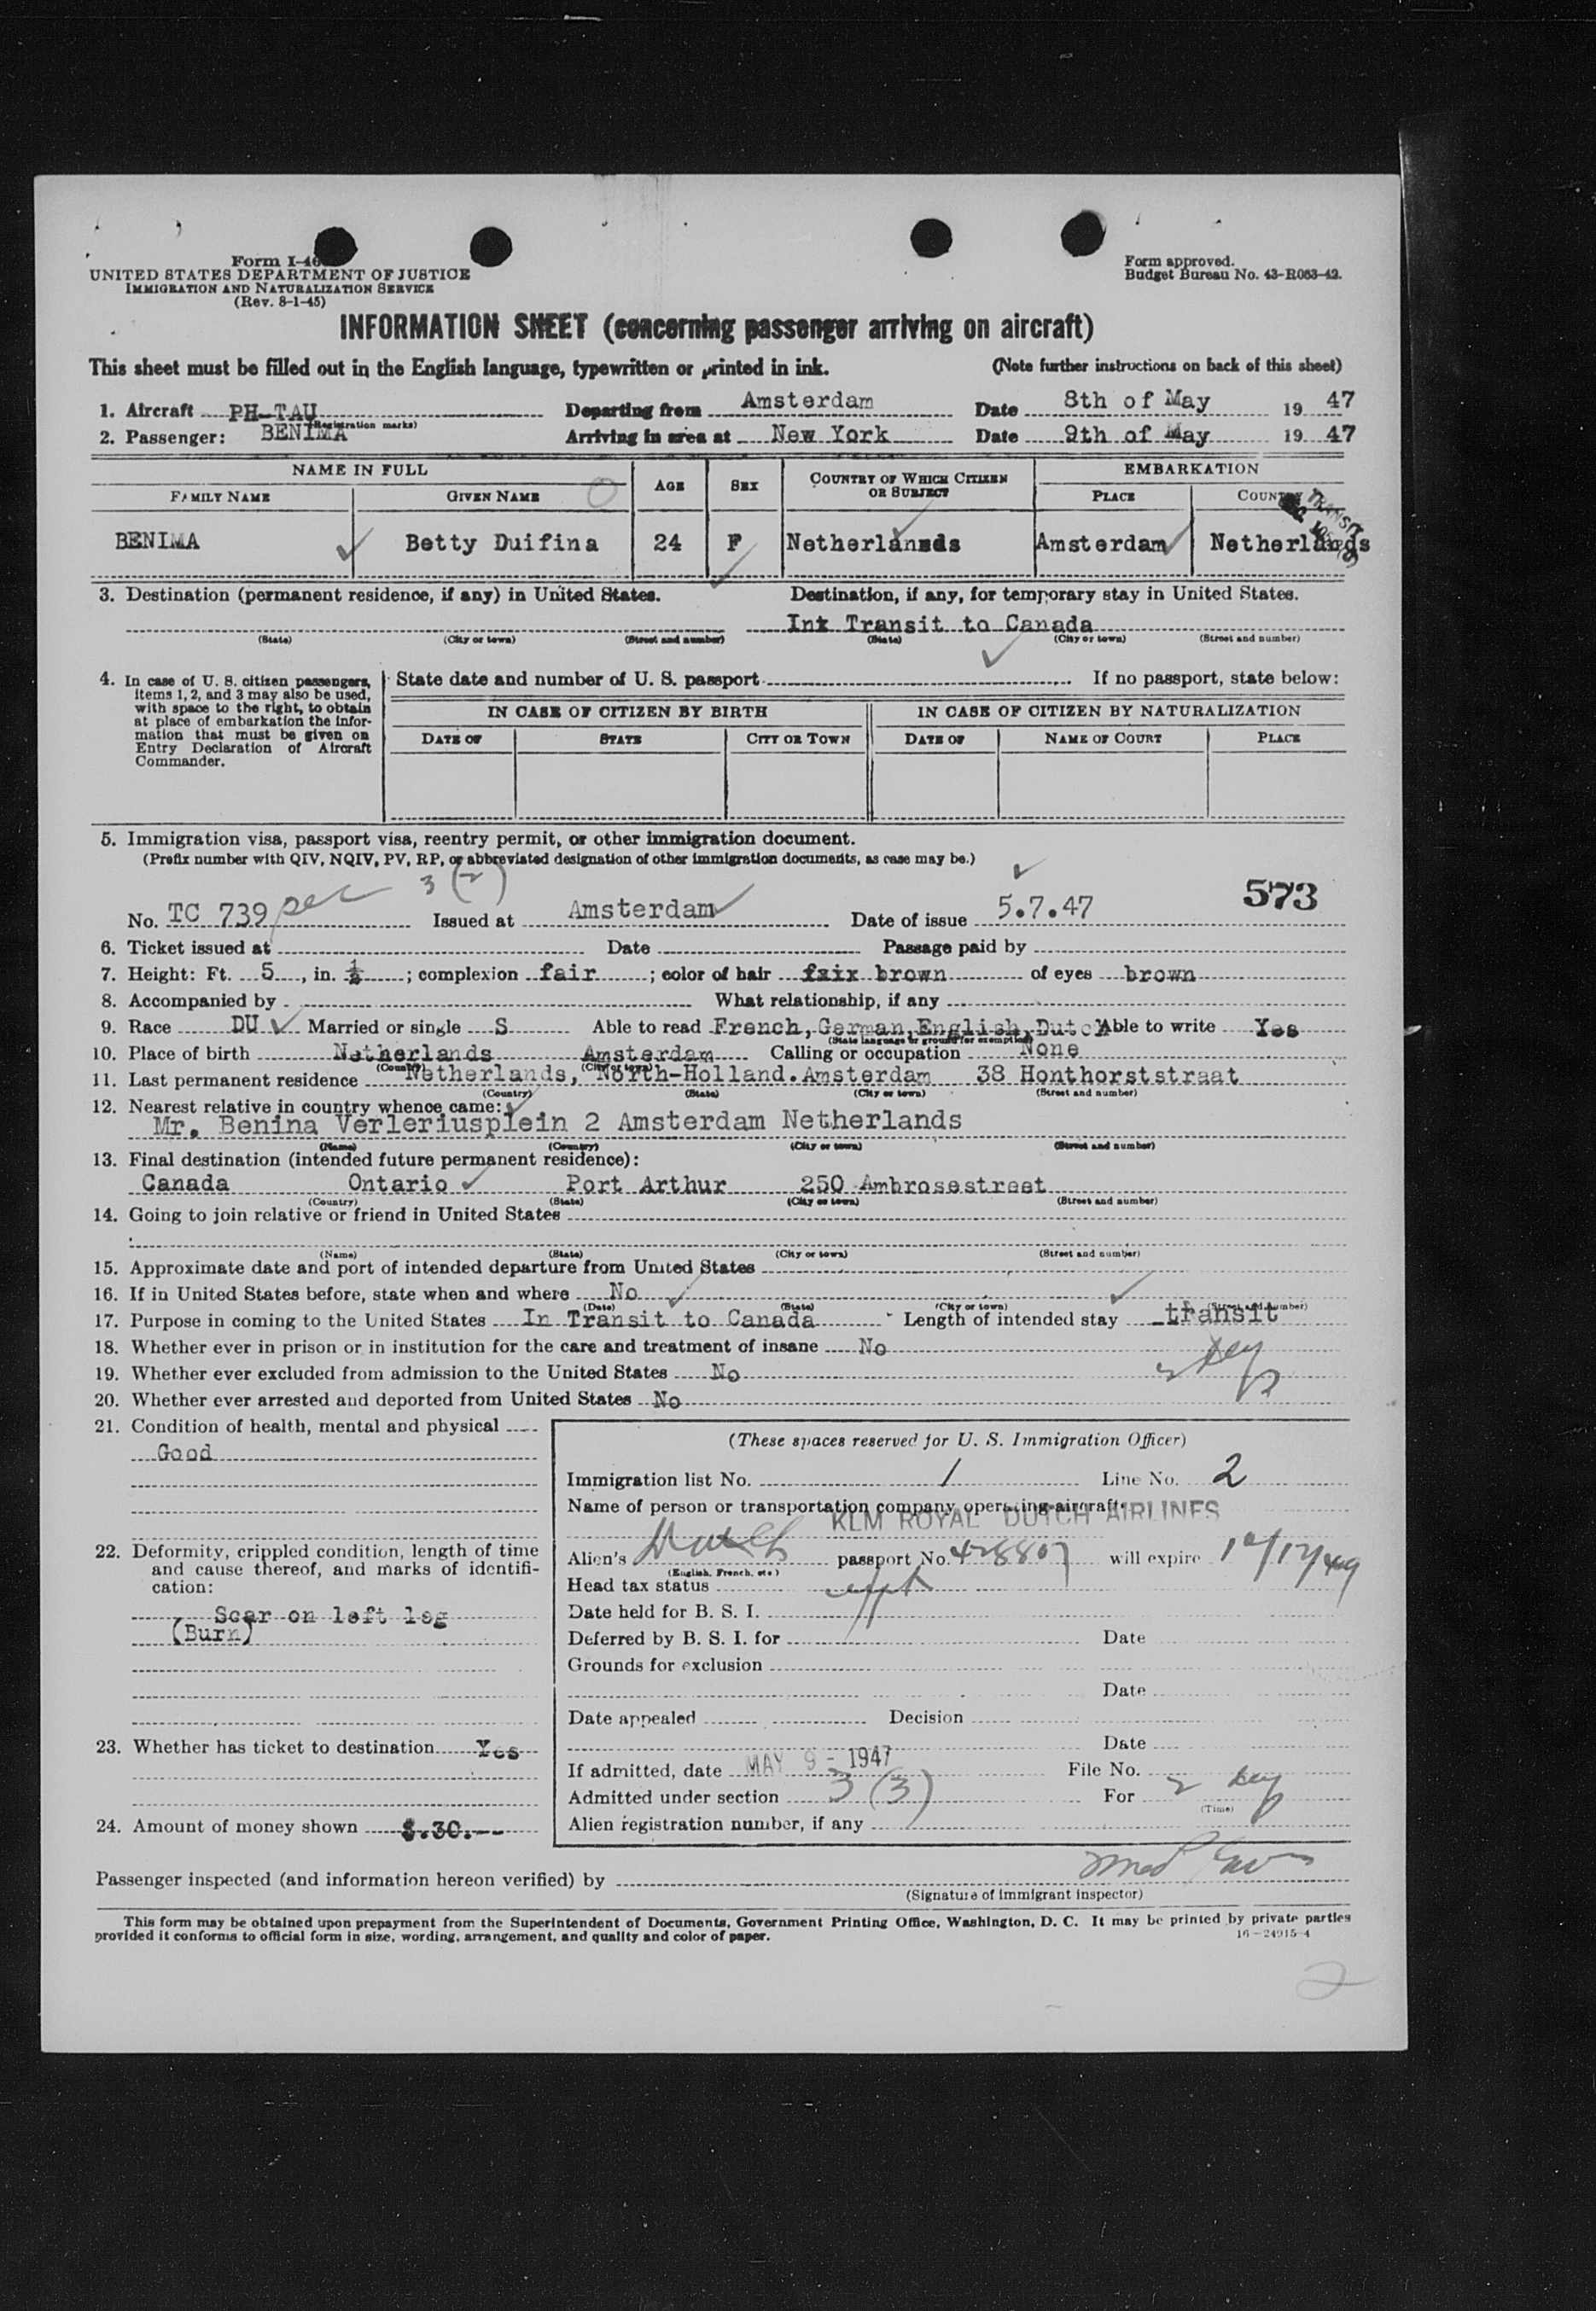 Form I-46
UNITED STATES DEPARTMENT OF JUSTICE
IMMIGRATION AND NATURALIZATION SERVICE
(Rev. 8-1-45)
Form approved.
Budget Bureau No. 43-R063-42.
INFORMATION SHEET (concerning passenger arriving on aircraft)
This sheet must be filled out in the English language, typewritten or printed in ink. (Note further instructions on back of this sheet)
1. Aircraft PH-TAU Departing from Amsterdam Date 8th of May 19 47
(Registration marks)
2. Passenger: BENIMA Arriving in area at New York Date 9th of May 19 47
NAME IN FULL AGE SEX COUNTRY OF WHICH CITIZEN OR SUBJECT EMBARKATION
FAMILY NAME GIVEN NAME PLACE COUNTRY
TRANSIT
BENIMA Betty Duifina 24 F Netherlands Amsterdam Netherlands
3. Destination (permanent residence, if any) in United States. Destination, if any, for temporary stay in United States.
Int Transit to Canada
(State) (City or town) (Street and number) (State) (City or town) (Street and number)
4. In case of U. S. citizen passengers, items 1, 2, and 3 may also be used, with space to the right, to obtain at place of embarkation the information that must be given on Entry Declaration of Aircraft Commander.
State date and number of U. S. passport If no passport, state below:
IN CASE OF CITIZEN BY BIRTH IN CASE OF CITIZEN BY NATURALIZATION
DATE OF STATE CITY OR TOWN DATE OF NAME OF COURT PLACE
5. Immigration visa, passport visa, reentry permit, or other immigration document.
(Prefix number with QIV, NQIV, PV, RP, or abbreviated designation of other immigration documents, as case may be.)
3 (2)
573
No. TC 739 Issued at Amsterdam Date of issue 5.7.47
6. Ticket issued at Date Passage paid by
7. Height: Ft. 5, in. ½; complexion fair; color of hair brown of eyes brown
8. Accompanied by What relationship, if any
9. Race DU Married or single S Able to read French, German, English, Dutch Able to write Yes
(State language or ground for exemption)
10. Place of birth Netherlands Amsterdam Calling or occupation None
(Country) (City or town)
11. Last permanent residence Netherlands, North-Holland. Amsterdam 38 Honthorststraat
(Country) (State) (City or town) (Street and number)
12. Nearest relative in country whence came:
Mr. Benina Verleriusplein 2 Amsterdam Netherlands
(Name) (Country) (City or town) (Street and number)
13. Final destination (intended future permanent residence):
Canada Ontario Port Arthur 250 Ambrosestreet
(Country) (State) (City or town) (Street and number)
14. Going to join relative or friend in United States
(Name) (State) (City or town) (Street and number)
15. Approximate date and port of intended departure from United States
16. If in United States before, state when and where No
(Date) (State) (City or town) (Street and number)
17. Purpose in coming to the United States In Transit to Canada Length of intended stay transit
18. Whether ever in prison or in institution for the care and treatment of insane No
19. Whether ever excluded from admission to the United States No
20. Whether ever arrested and deported from United States No
21. Condition of health, mental and physical
Good
22. Deformity, crippled condition, length of time and cause thereof, and marks of identification:
Scar on left leg
(Burn)
23. Whether has ticket to destination Yes
24. Amount of money shown $.30.--
(These spaces reserved for U. S. Immigration Officer)
Immigration list No. 1 Line No. 2
Name of person or transportation company operating aircraft
KLM ROYAL DUTCH AIRLINES
Alien's Dutch passport No. 428807 will expire
(English, French, etc.)
Head tax status
Date held for B. S. I.
Deferred by B. S. I. for Date
Grounds for exclusion
Date
Date appealed Decision
Date
If admitted, date MAY 9 - 1947 File No.
Admitted under section 3 (3) For 2 day
(Time)
Alien registration number, if any
Passenger inspected (and information hereon verified) by
(Signature of immigrant inspector)
This form may be obtained upon prepayment from the Superintendent of Documents, Government Printing Office, Washington, D. C. It may be printed by private parties
provided it conforms to official form in size, wording, arrangement, and quality and color of paper.
16-24915-4
2